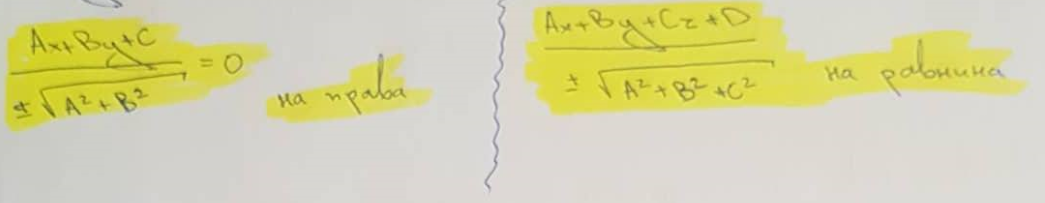 Ax+By+C
± √A²+B² = 0 на права
Ax+By+Cz+D
± √A²+B²+C² на равнина